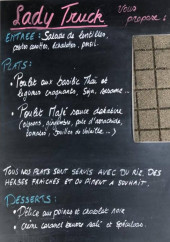 Lady Truck
Vous
propose :
ENTRÉE : Salade de lentilles,
persil.
PLATS :
• Poulet aux basilic Thaï et
légumes croquants, Soja, sésame...
• Poulet Mafé sauce dakatine
(oignons, gingembre, pâte d'arachide,
tomates, feuilles de
TOUS NOS PLATS SONT SERVIS AVEC DU RIZ, DES
HERBES FRAICHES ET DU PIMENT A SOUHAIT.
DESSERTS :
• Délice aux poires et chocolat noir
• Crème caramel beurre salé et spéculoos.